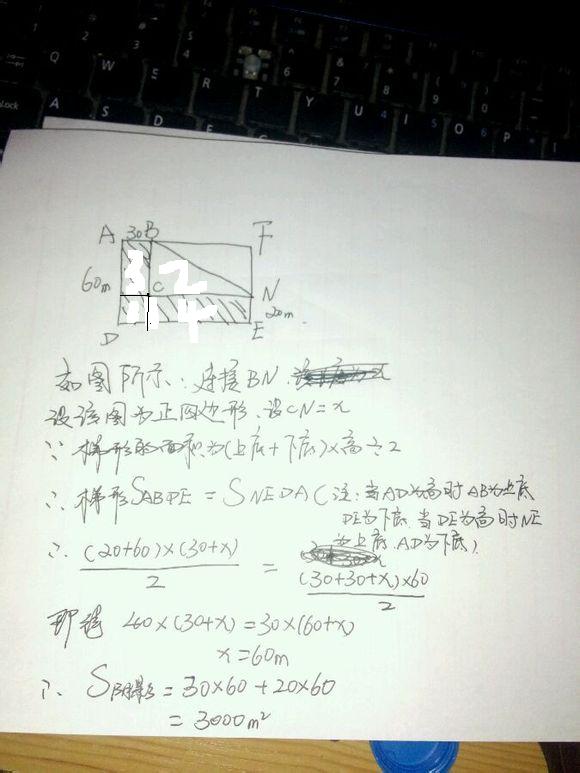 A 30 B F
3 2
60m C N
1 4 20m
D E
如图所示、连接BN.
设该图为正四边形、设CN=x
∵ 梯形的面积为(上底+下底)×高÷2
∴ 梯形SABDE = SNEDA (注:当AD为高时AB为上底
DE为下底.当DE为高时NE
为上底.AD为下底)
∴ (20+60)×(30+x) / 2 = (30+30+x)×60 / 2
即得 40×(30+x)=30×(60+x)
x=60m
∴ S阴影 = 30×60+20×60
= 3000m²
Q W E R T Y U I O P
A S D